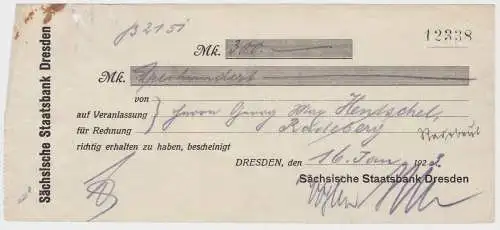 Sächsische Staatsbank Dresden
Mk. 300.—
12338
Mk. Dreihundert
von
auf Veranlassung } Herrn Georg Max Hentschel,
für Rechnung Radeberg
richtig erhalten zu haben, bescheinigt
DRESDEN, den 16. Jan. 1923.
Sächsische Staatsbank Dresden